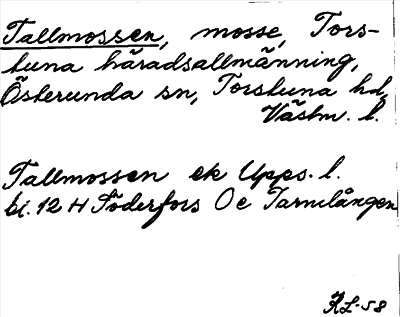 Tallmossen, mosse, Tors-
tuna häradsallmänning,
Österunda sn, Torstuna hd,
Västm. l.
Tallmossen ek Upps. l.
bl. 12 H Söderfors O c Tarmlången
KL-58